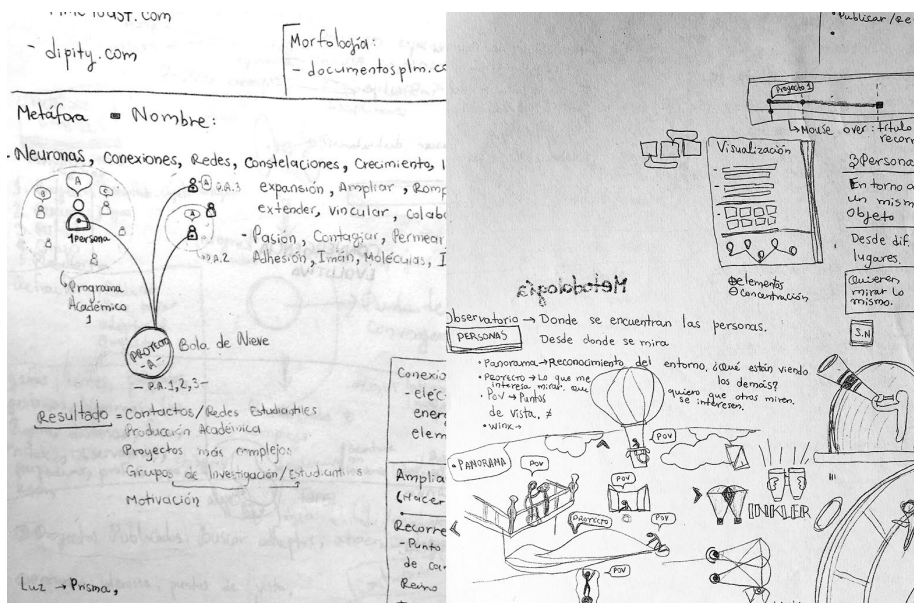 - dipity.com
Morfología:
- documentosplm.co
Metáfora Nombre:
Neuronas, Conexiones, Redes, Constelaciones, Crecimiento,
expansión, Ampliar, Romp
extender, Vincular, Colab
- Pasión, Contagiar, Permear
Adhesión, Imán, Moléculas,
B
A
C
1 persona
A
P.A.3
A
P.A.2
Programa
Académico
1
PROYECTO
- A -
Bola de Nieve
- P.A. 1,2,3 -
Resultado = Contactos/Redes Estudiantiles
Producción Académica
Proyectos más complejos
Grupos de Investigación/Estudiantiles
Motivación
Luz → Prisma,
Conexio
- elec
ener
elem
Amplia
(Hacer
Recorre
- Punto
de
Reino
• Publicar/
Proyecto 1
↳ Mouse over: título
recorr
Visualización
⊕ elementos
⊖ concentración
3 Persona
En torno a
un mism
objeto
Desde dif.
lugares.
Quieren
mirar lo
mismo.
S.N
Metodología
Observatorio → Donde se encuentran las personas.
PERSONAS
Desde donde se mira
• Panorama → Reconocimiento del entorno, ¿Qué están viendo
los demás?
• Proyecto → Lo que me
interesa mirar, que
quiero que otros miren.
se interesen.
• POV → Puntos
de vista, ≠
• winx →
• PANORAMA
POV
POV
POV
PROYECTO
POV
POV
INKLER